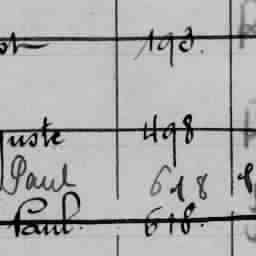 193.
uste 498
Paul 618
Paul. 618.